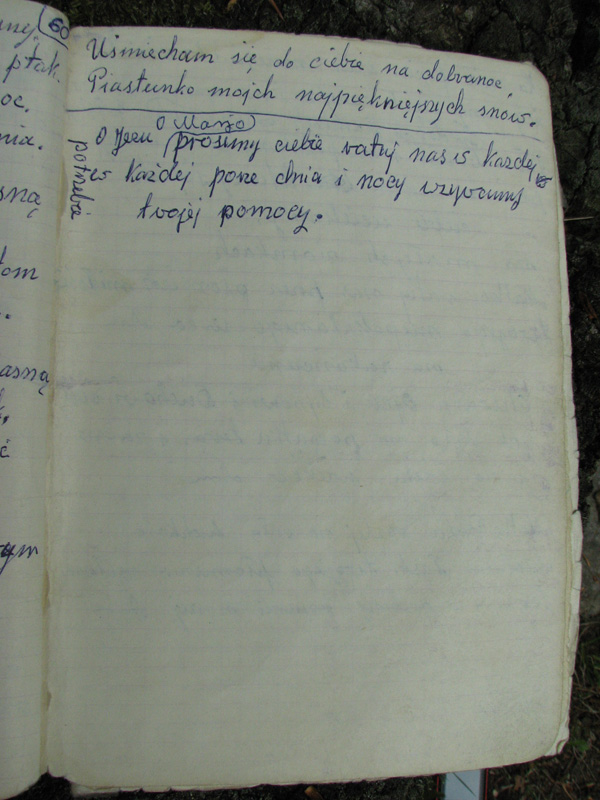 60
ptak.
oc.
nia.
sną
tom
asną
ć
ym
Uśmiecham się do ciebie na dobranoc
Piastunko mojch najpiękniejszych snów.
O Maryjo
O Jezu prosimy ciebie ratuj nas w każdej
potrzebie
w każdej porze dnia i nocy wzywamy
twojej pomocy.